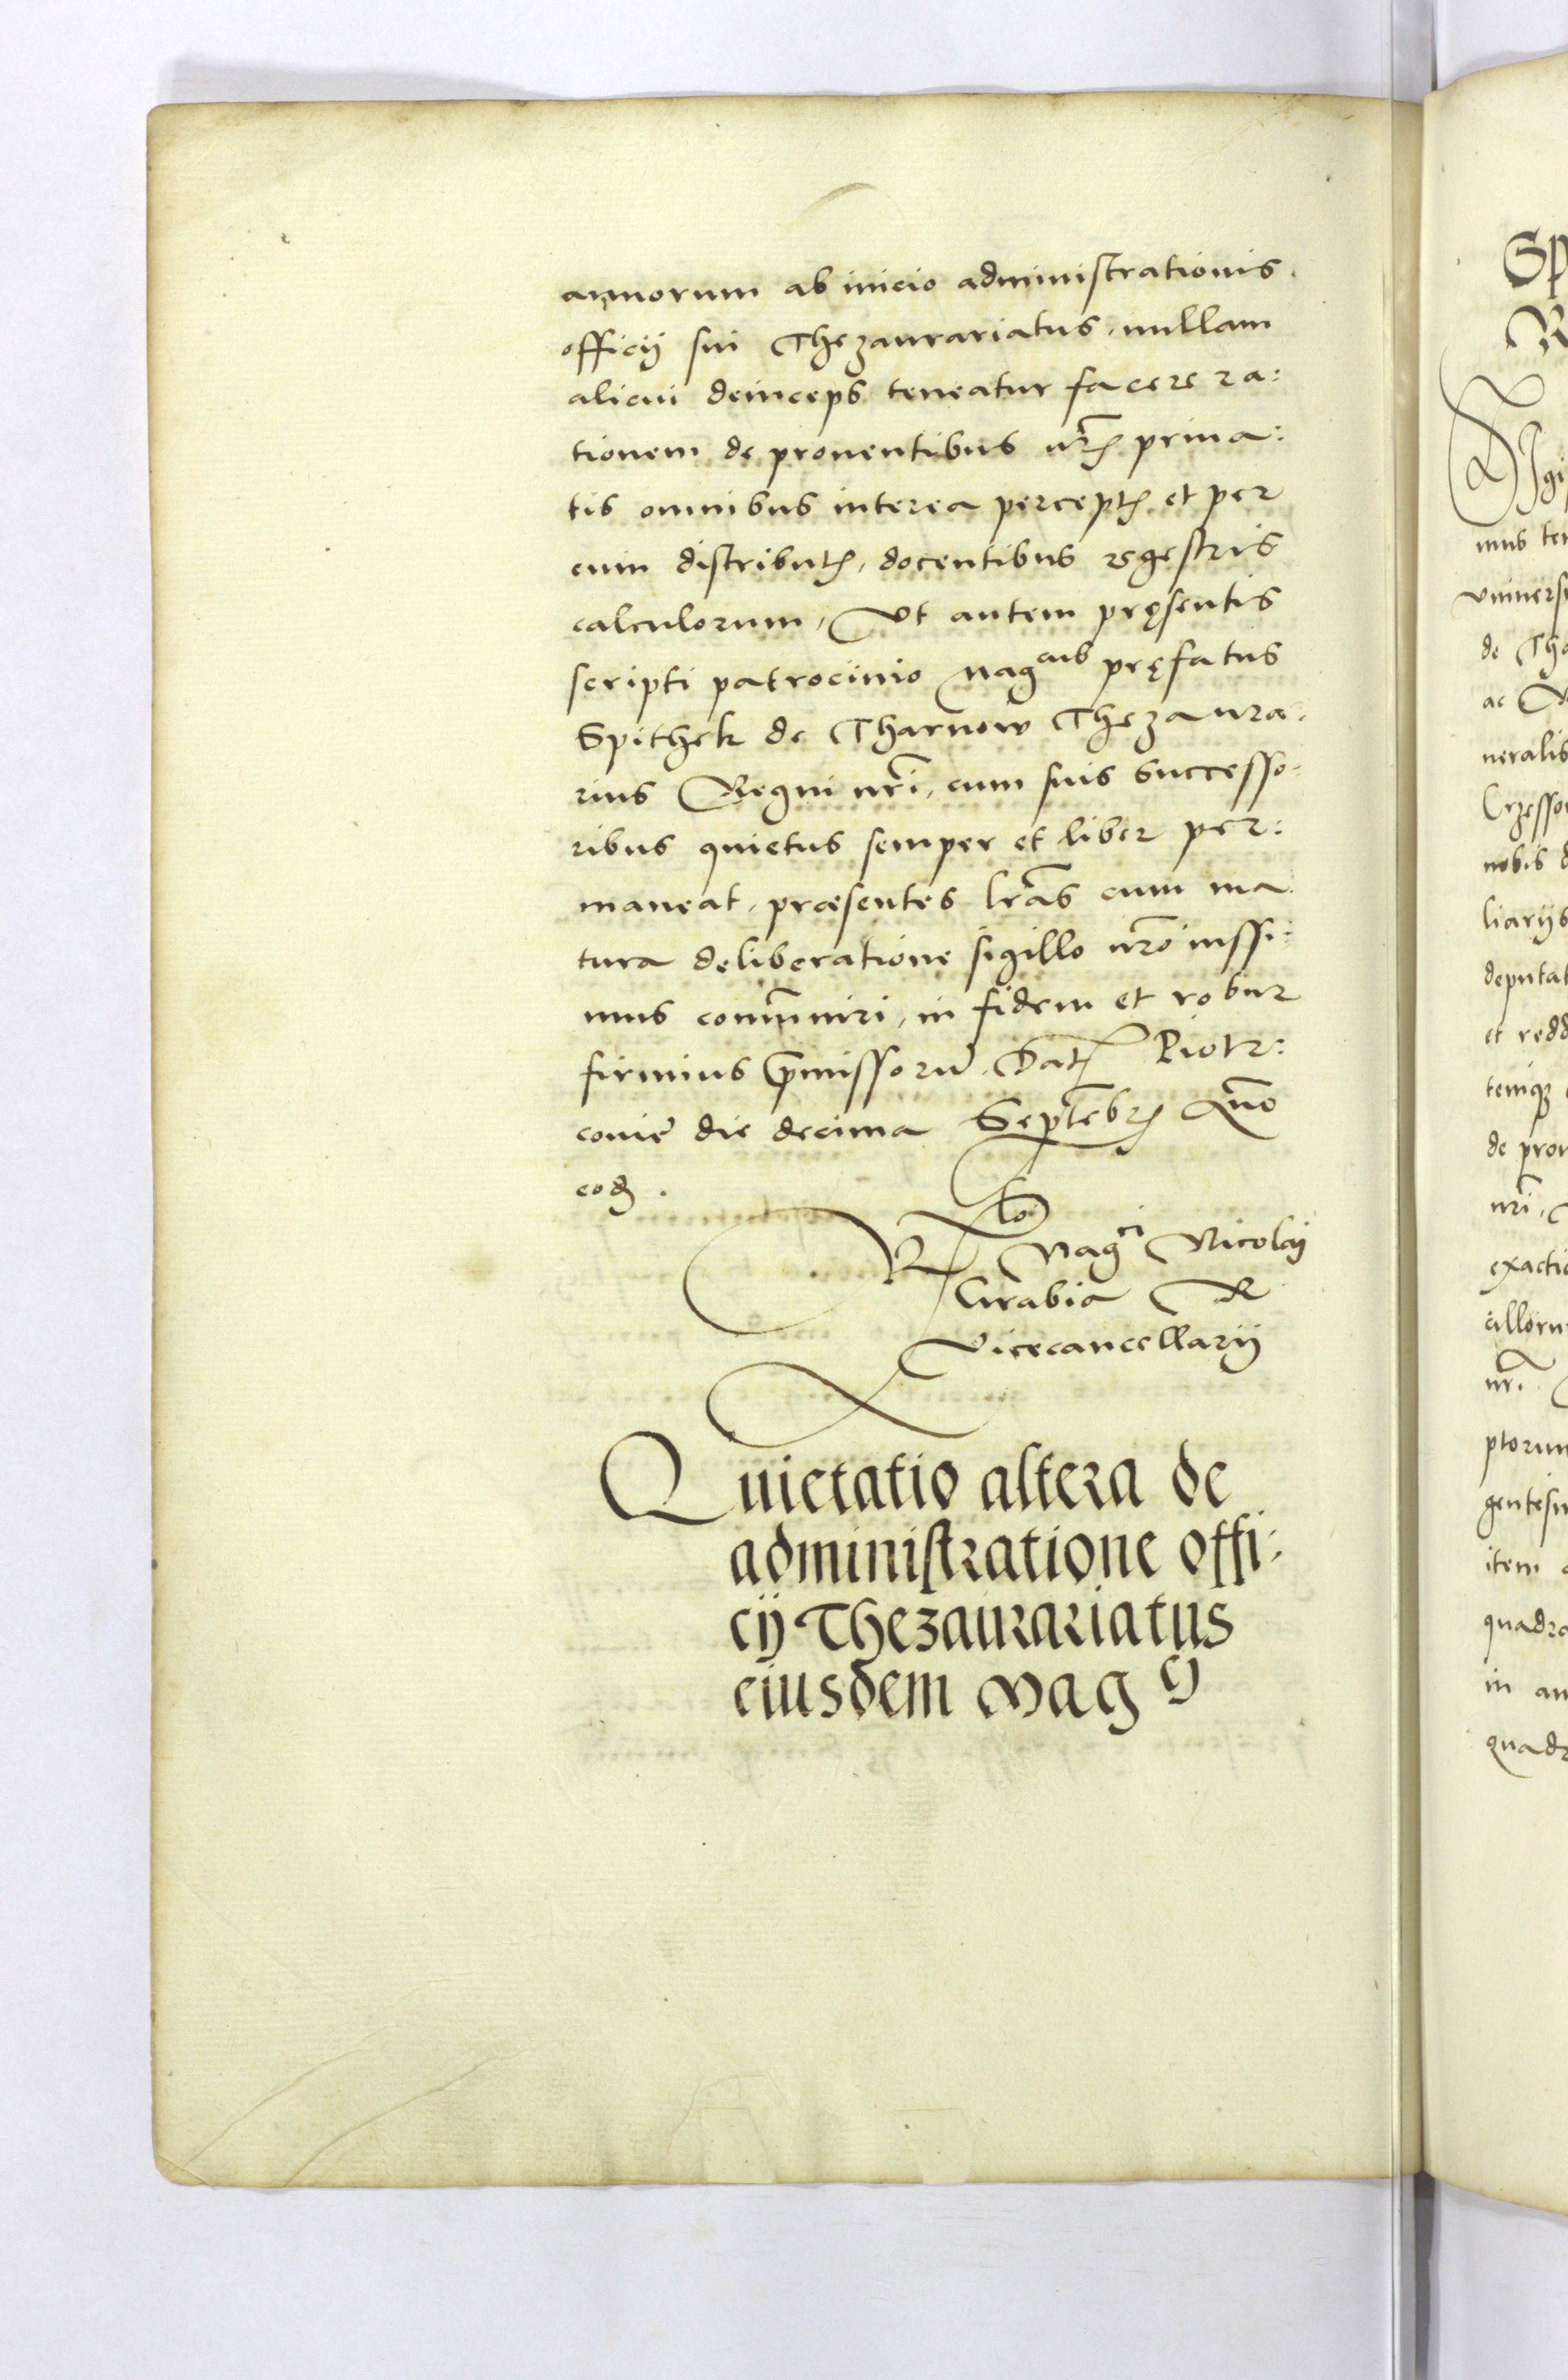 annorum ab inicio administrationis
officij sui Thezaurariatus, nullam
alicui deinceps teneatur facere ra:
tionem de prouentibus nr̃is priua:
tis omnibus interea perceptis et per
eum distributis, docentibus regestris
calculorum, Vt autem pręsentis
scripti patrocinio Mag^cus pręfatus
Spithek de Tharnow Thezaura:
rius Regni nr̃i, cum suis successo:
ribus quietus semper et liber per:
maneat, præsentes lr̃as cum ma
tura deliberatione sigillo nr̃o iussi:
mus com̃uniri, in fidem et robur
firmius p̃missorũ. Dat̃ Piotr:
couiẽ die decima Septẽbris Anno
eod̃.
Rlo Mag^ci Nicolaj
Grabia R
Vicecancellarij
Quietatio altera de
administratione offi:
cij Thezaurariatus
eiusdem Mag^ci
Sp
R
Sigi
mus te
Vniuers
de Tha
ac
neralis
Crzesso
nobis d
liarijs
deputat
et redd
temq₃
de prou
nr̃i,
exactio
cillorum
nr̃i
ptorum
gentesi
item
quadra
in an
quadr